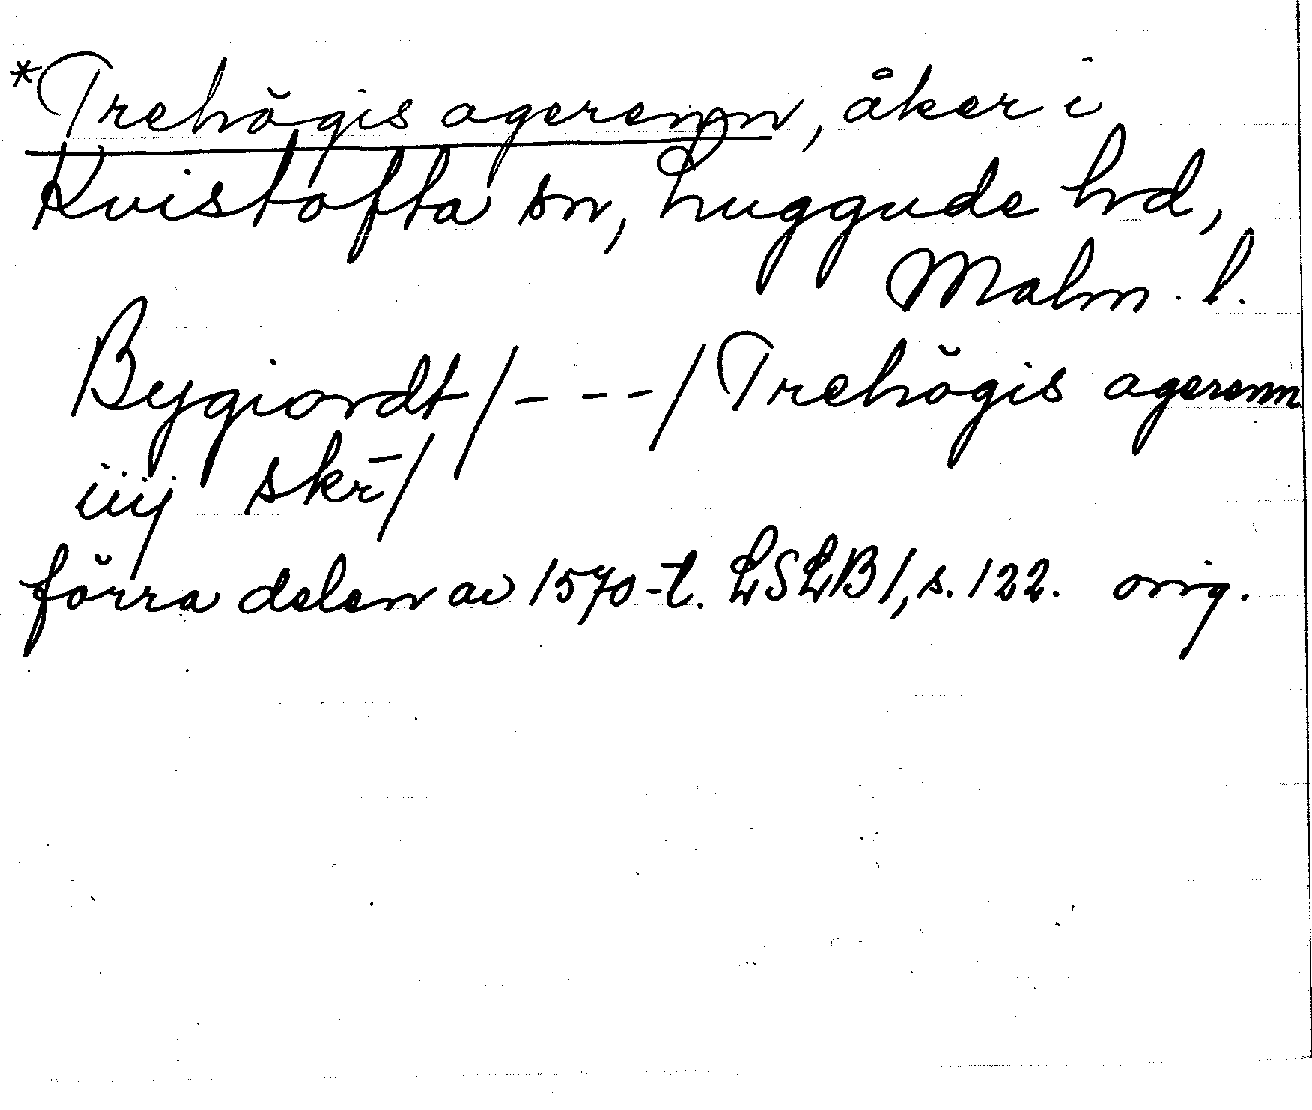 *Trehögis agerenn, åker i
Kvistofta sn, Luggude hd,
Malm. l.
Bygiordt/- - - -/Trehögis agerenn
iiij skr̄/
förra delen av 1570-t. LSLB1, s. 122. orig.